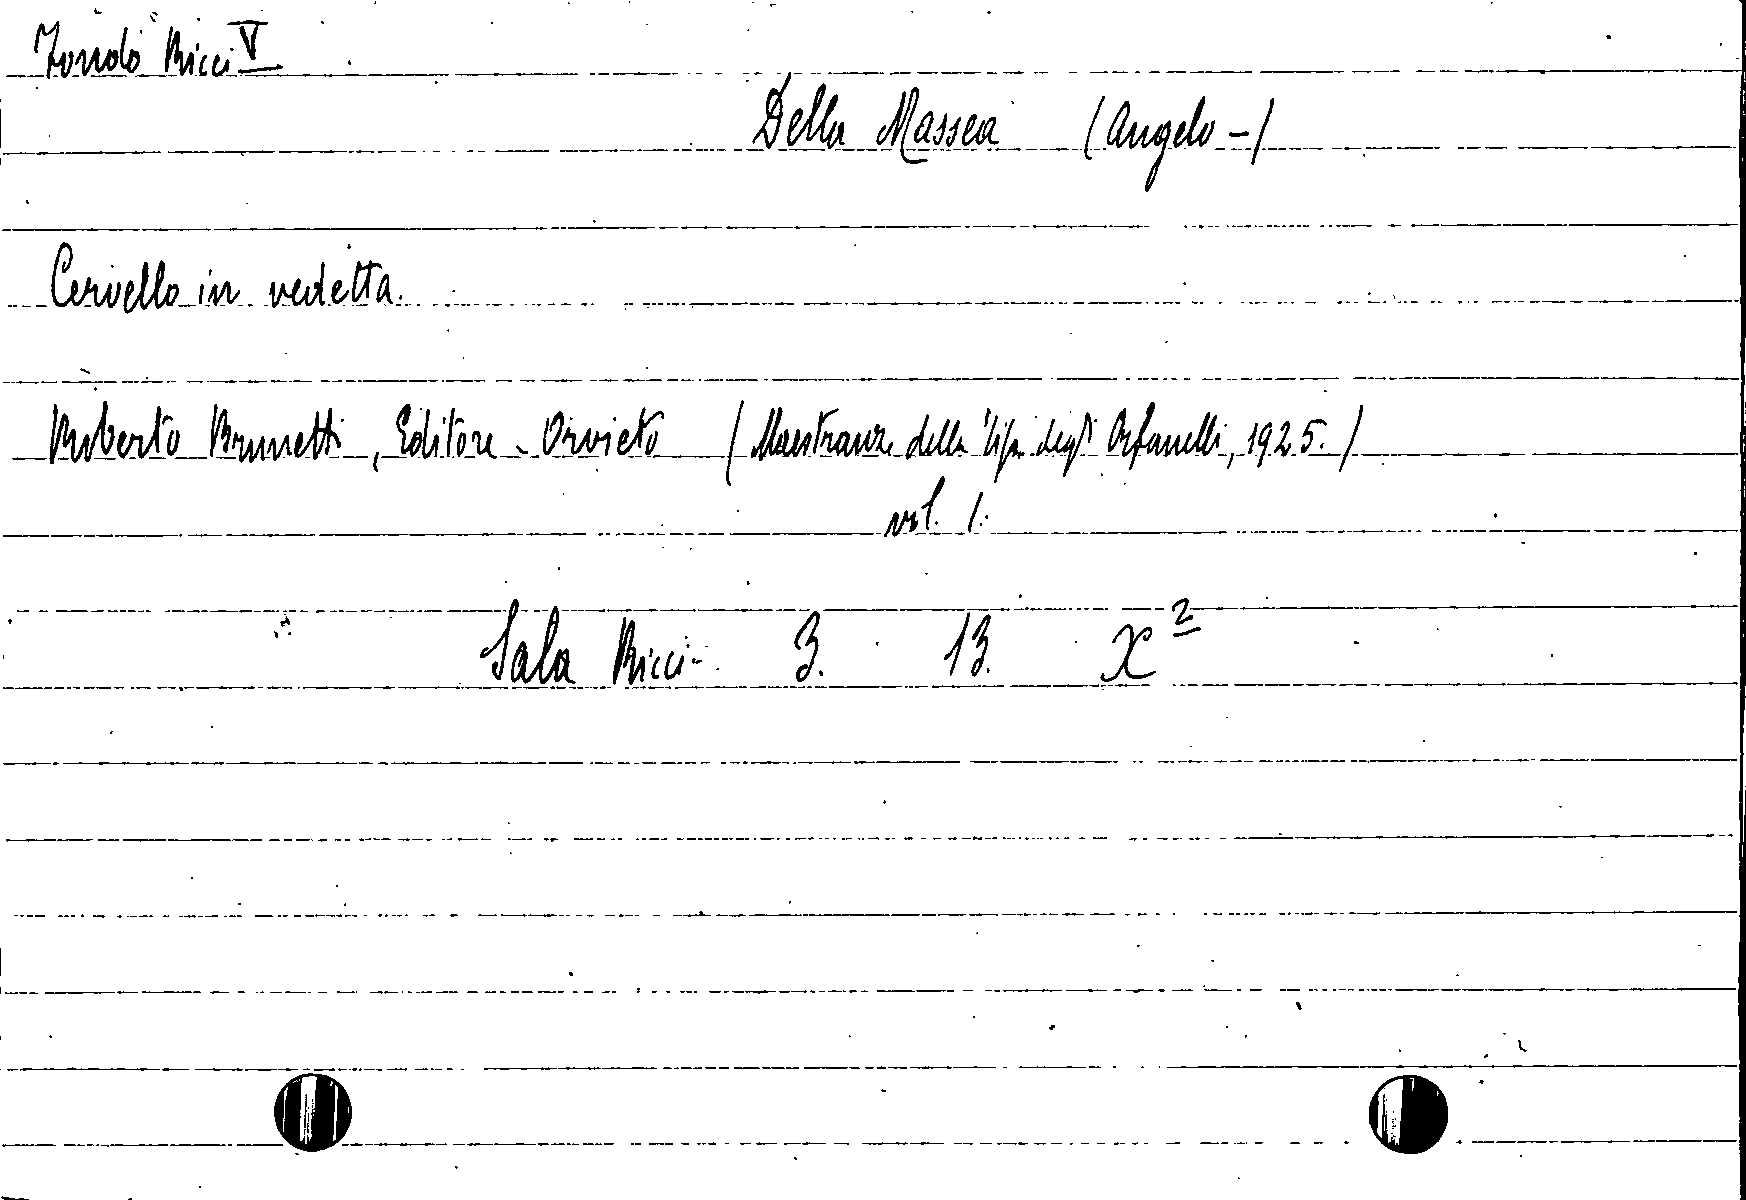 Fondo Ricci V
Della Massea (Angelo -)
Cervello in vedetta.
Roberto Brunetti, Editore - Orvieto (Maestranze della Tip. degli Orfanelli, 1925.)
vol. 1.
Sala Ricci - 3. 13. X²